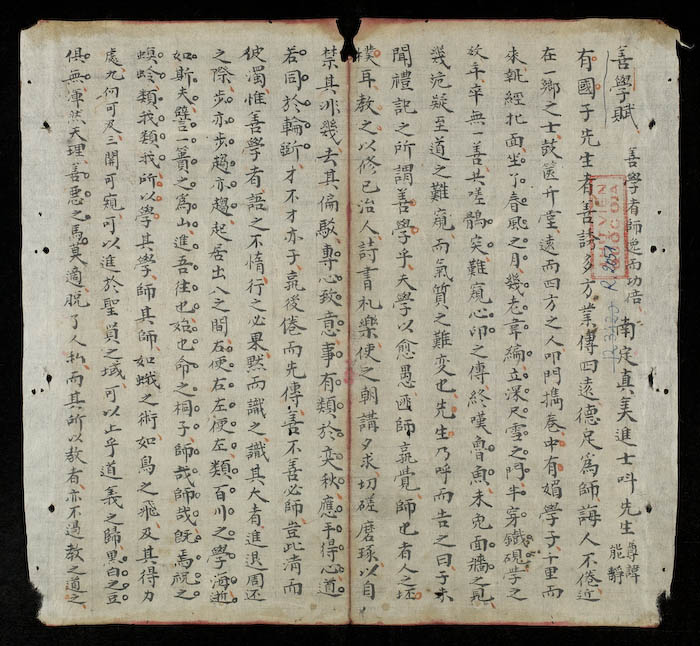 善學賦 善學者師逸而功倍 南定真美進士呌先生 尊諱能靜
有國子先生者善誘多方業傳四遠德足為師誨人不倦近
在一鄉之士鼓篋升堂遠而四方之人叩門擕卷中有媚學子十里而
來執經北面坐了春風之月幾老韋編立深尺雪之門半穿鐵硯學之
年卒無一善共嗟鶻突難窺心印之傳終嘆魯魚未免面墻之見
幾泥疑至道之難窺而氣質之難變也先生乃呼而告之曰子未
聞禮記之所謂善學乎夫學以愈愚因師孰覺師也者人之坯
樸耳教之以修己治人詩書礼樂使之朝講夕求切磋磨琢以自
禁其非幾去其偏駁專心致意事有類於奕秋應手得心道
若同於輪斲才不才亦子孰後倦而先傳善不善必師豈此清而
彼濁惟善學者語之不惰行之必果默而識之識其大者進退周还
之際步亦步趨亦趨起居出入之間右便右左便左類百川之學海逝
如斯夫譬一簣之為山進吾往也始也命之桐子師哉師哉旣焉祝之
螟蛉類我類我所以學其學師其師如蛾之術如鳥之飛及其得力
處九仞可及三關可窺可以進於聖賢之域可以上乎道義之歸黑白之豆
俱無渾然天理善惡之馬莫適脫了人私而其所以教者亦不過教之道之